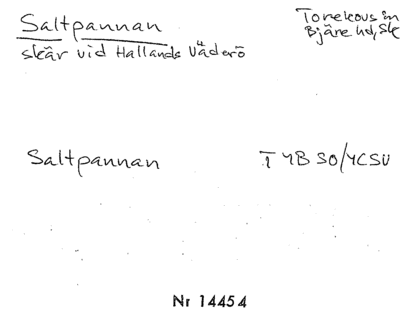 Saltpannan
Torekovs sn
Bjäre hd, Sk
skär vid Hallands Väderö
Saltpannan
T 4B SO/4C SV
Nr 14454